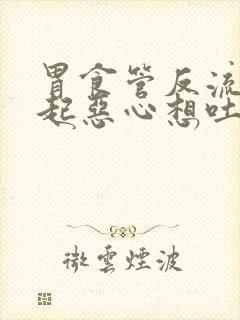 胃食管反流
起恶心想吐
微雲煙波